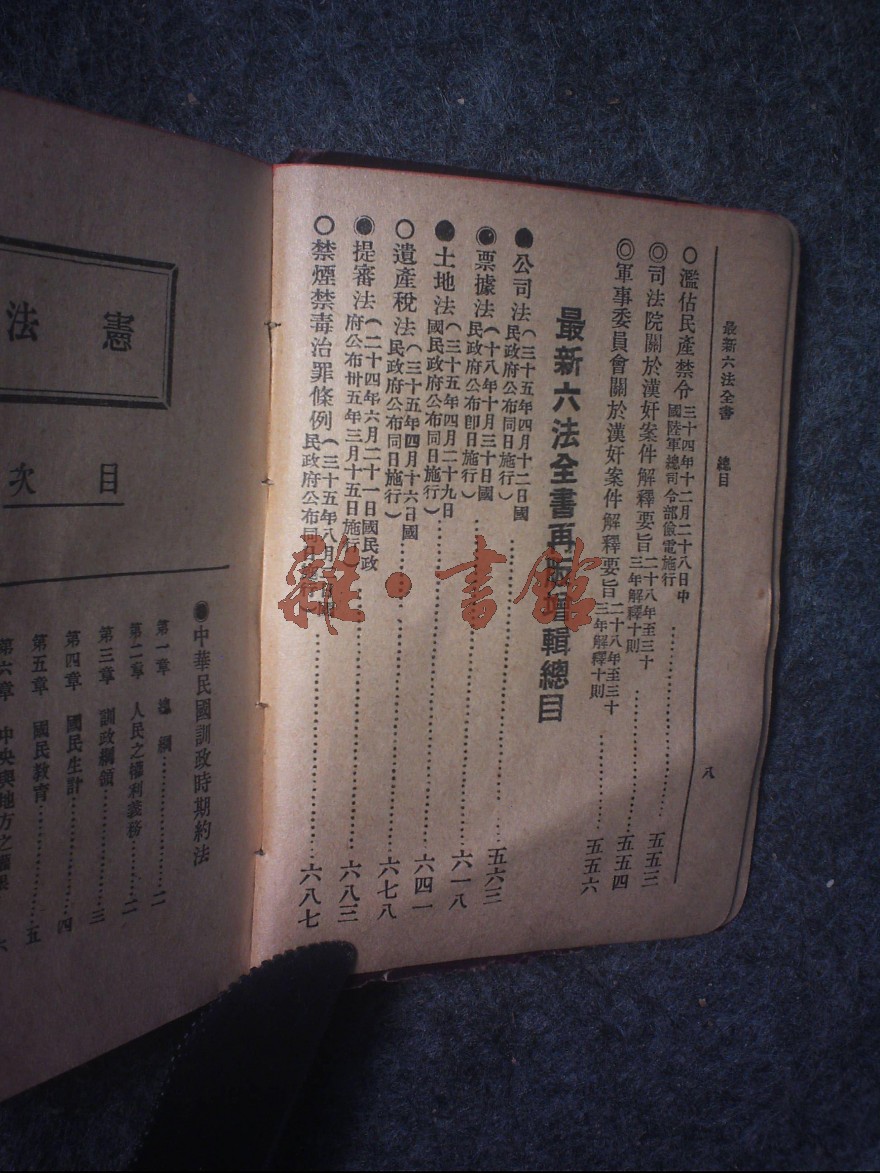 最新六法全書　總目　八
○濫佔民產禁令 三十四年十二月二十八日中國陸軍總司令部儉電施行 五五三
◎司法院關於漢奸案件解釋要旨 二十八年至三十三年解釋十則 五五四
◎軍事委員會關於漢奸案件解釋要旨 二十八年至三十三年解釋十則 五五六
最新六法全書再版增輯總目
●公司法（三十五年四月十二日國民政府公布同日施行） 五六三
◉票據法（十八年十月三十日國民政府公布卽日施行） 六一八
●土地法（三十五年四月二十九日國民政府公布同日施行） 六四一
○遺產稅法（三十五年四月十六日國民政府公布同日施行） 六七八
◉提審法（二十四年六月二十一日國民政府公布卅五年三月十五日施行） 六八三
○禁煙禁毒治罪條例（三十五年八月 民政府公布同 六八七
憲法
目次
◉中華民國訓政時期約法
第一章　總綱 二
第二章　人民之權利義務 二
第三章　訓政綱領 三
第四章　國民生計 四
第五章　國民教育 五
第六章　中央與地方之權限 六
雜·書館